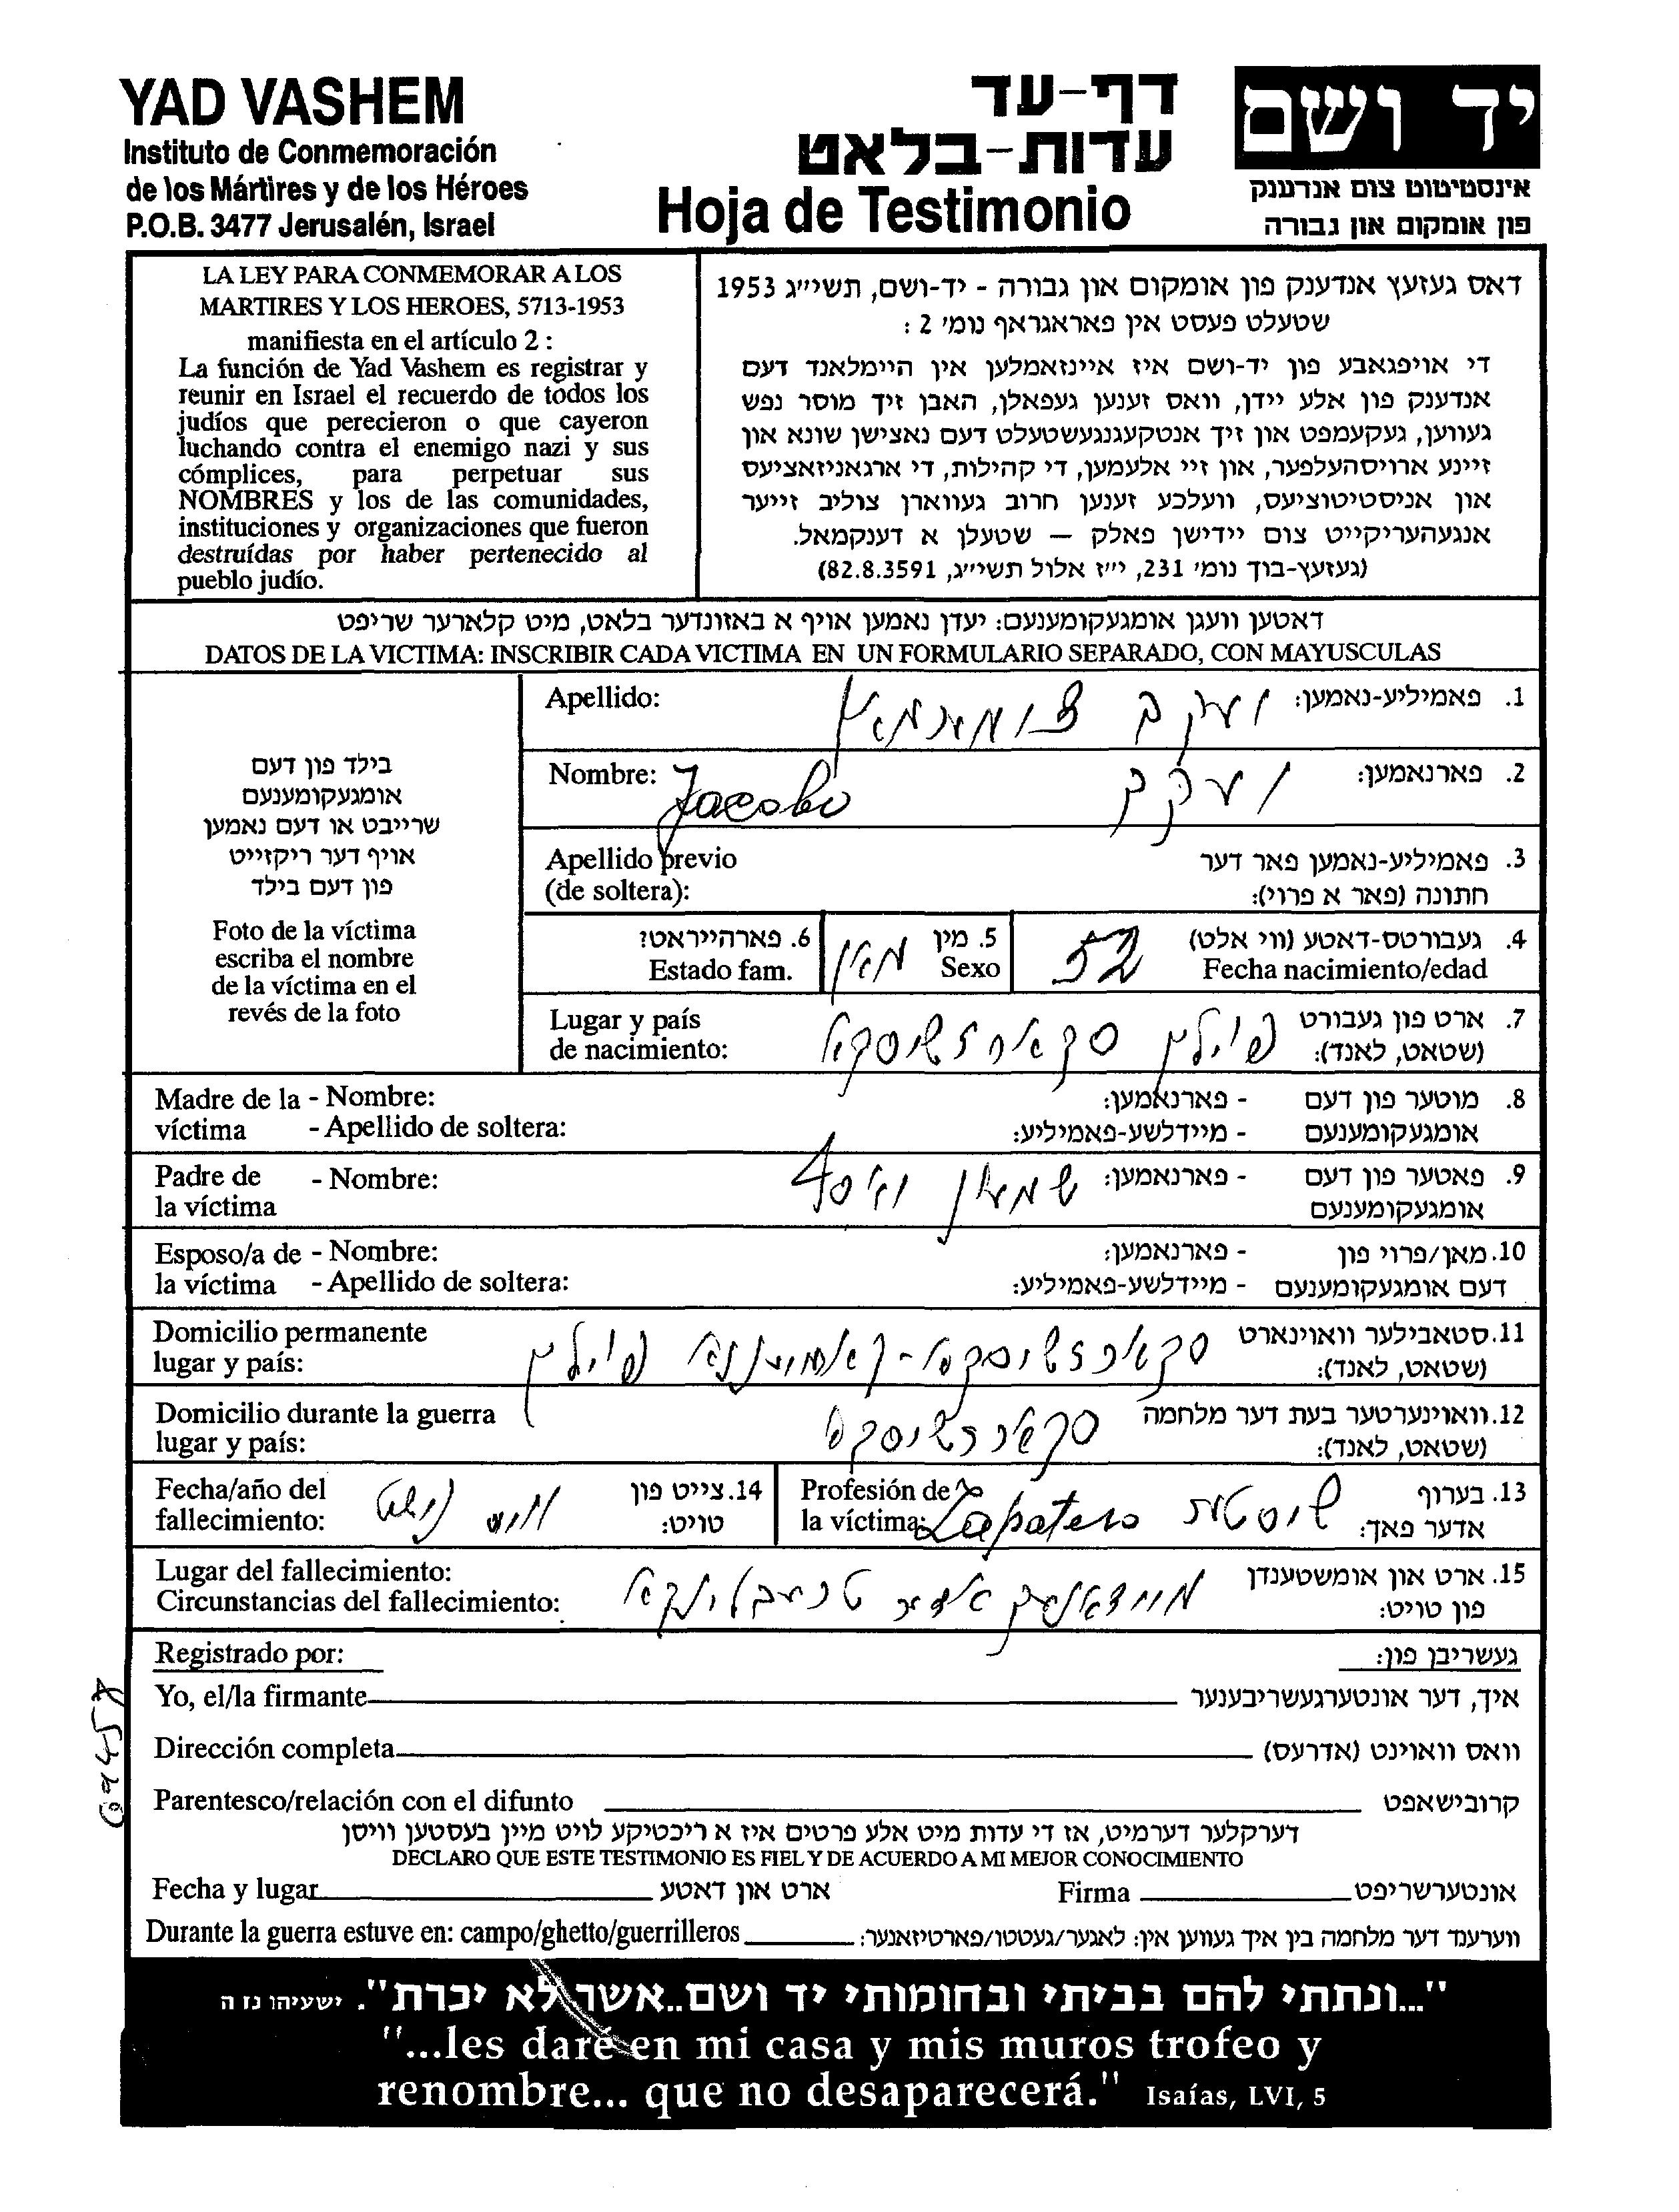 YAD VASHEM
Instituto de Conmemoración
de los Mártires y de los Héroes
P.O.B. 3477 Jerusalén, Israel
דף-עד
עדות-בלאט
Hoja de Testimonio
יד ושם
אינסטיטוט צום אנדענק
פון אומקום און גבורה
LA LEY PARA CONMEMORAR A LOS
MARTIRES Y LOS HEROES, 5713-1953
manifiesta en el artículo 2 :
La función de Yad Vashem es registrar y
reunir en Israel el recuerdo de todos los
judíos que perecieron o que cayeron
luchando contra el enemigo nazi y sus
cómplices, para perpetuar sus
NOMBRES y los de las comunidades,
instituciones y organizaciones que fueron
destruídas por haber pertenecido al
pueblo judío.
דאס געזעץ אנדענק פון אומקום און גבורה - יד-ושם, תשי״ג 1953
שטעלט פעסט אין פאראגראף נומ׳ 2 :
די אויפגאבע פון יד-ושם איז איינזאמלען אין היימלאנד דעם
אנדענק פון אלע יידן, וואס זענען געפאלן, האבן זיך מוסר נפש
געווען, געקעמפט און זיך אנטקעגנגעשטעלט דעם נאצישן שונא און
זיינע ארויסהעלפער, און זיי אלעמען, די קהילות, די ארגאניזאציעס
און אניסטיטוציעס, וועלכע זענען חרוב געווארן צוליב זייער
אנגעהעריקייט צום יידישן פאלק — שטעלן א דענקמאל.
(געזעץ-בוך נומ׳ 231, י״ז אלול תשי״ג, 82.8.3591)
דאטען וועגן אומגעקומענעם: יעדן נאמען אויף א באזונדער בלאט, מיט קלארער שריפט
DATOS DE LA VICTIMA: INSCRIBIR CADA VICTIMA EN UN FORMULARIO SEPARADO, CON MAYUSCULAS
בילד פון דעם
אומגעקומענעם
שרייבט או דעם נאמען
אויף דער ריקזייט
פון דעם בילד
Foto de la víctima
escriba el nombre
de la víctima en el
revés de la foto
1. פאמיליע-נאמען: יעקב Apellido:
2. פארנאמען: יעקב Nombre: Jacobo
3. פאמיליע-נאמען פאר דער Apellido previo
חתונה (פאר א פרוי): (de soltera):
4. געבורטס-דאטע (ווי אלט) 52 5. מין מאן 6. פארהייראט?
Fecha nacimiento/edad Sexo Estado fam.
7. ארט פון געבורט פוילן סקארזשיסקא Lugar y país
(שטאט, לאנד): de nacimiento:
8. מוטער פון דעם - פארנאמען: Madre de la - Nombre:
אומגעקומענעם - מיידלשע-פאמיליע: víctima - Apellido de soltera:
9. פאטער פון דעם - פארנאמען: שמעון Padre de - Nombre:
אומגעקומענעם la víctima
10. מאן/פרוי פון - פארנאמען: Esposo/a de - Nombre:
דעם אומגעקומענעם - מיידלשע-פאמיליע: la víctima - Apellido de soltera:
11. סטאבילער וואוינארט סקארזשיסקא-קאמיענא פוילן Domicilio permanente
(שטאט, לאנד): lugar y país:
12. וואוינערטער בעת דער מלחמה סקארזשיסקא Domicilio durante la guerra
(שטאט, לאנד): lugar y país:
13. בערוף שוסטער Zapatero Profesión de
אדער פאך: la víctima:
14. צייט פון ווייס נישט Fecha/año del
טויט: fallecimiento:
15. ארט און אומשטענדן מיידאנעק אדער טרעבלינקא Lugar del fallecimiento:
פון טויט: Circunstancias del fallecimiento:
Registrado por: געשריבן פון:
Yo, el/la firmante איך, דער אונטערגעשריבענער
Dirección completa וואס וואוינט (אדרעס)
Parentesco/relación con el difunto קרובישאפט
דערקלער דערמיט, אז די עדות מיט אלע פרטים איז א ריכטיקע לויט מיין בעסטען וויסן
DECLARO QUE ESTE TESTIMONIO ES FIEL Y DE ACUERDO A MI MEJOR CONOCIMIENTO
Fecha y lugar ארט און דאטע Firma אונטערשריפט
Durante la guerra estuve en: campo/ghetto/guerrilleros ווערענד דער מלחמה בין איך געווען אין: לאגער/געטטו/פארטיזאנער:
"...ונתתי להם בביתי ובחומותי יד ושם..אשר לא יכרת". ישעיהו נז ה
"...les daré en mi casa y mis muros trofeo y
renombre... que no desaparecerá." Isaías, LVI, 5